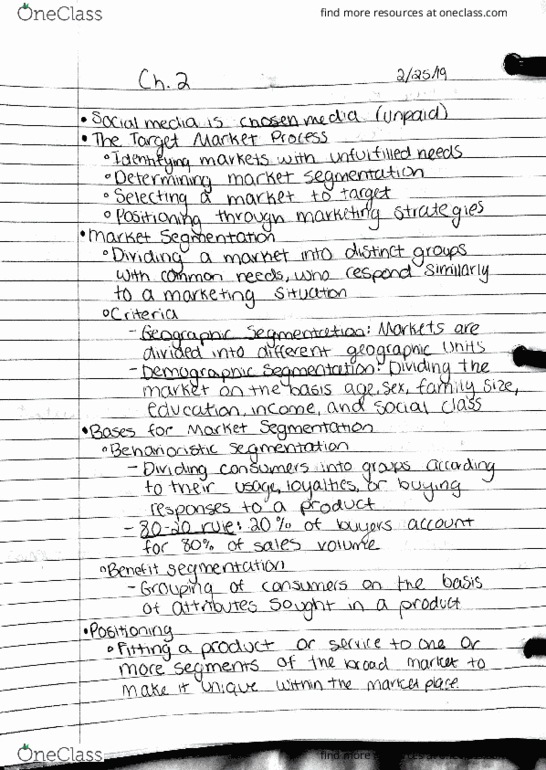 OneClass
find more resources at oneclass.com
Ch. 2
2/25/19
• Social media is chosen media (unpaid)
• The Target Market Process
° Identifying markets with unfulfilled needs
° Determining market segmentation
° Selecting a market to target
° Positioning through marketing strategies
• Market Segmentation
° Dividing a market into distinct groups
with common needs, who respond similarly
to a marketing situation
° Criteria
- Geographic Segmentation: Markets are
divided into different geographic units
- Demographic Segmentation: Dividing the
market on the basis age, sex, family size,
education, income, and social class
• Bases for Market Segmentation
° Behavioristic Segmentation
- Dividing consumers into groups according
to their usage, loyalties, or buying
responses to a product
- 80-20 rule: 20% of buyers account
for 80% of sales volume
° Benefit segmentation
- Grouping of consumers on the basis
of attributes sought in a product
• Positioning
° Fitting a product or service to one or
more segments of the broad market to
make it unique within the market place.
OneClass
find more resources at oneclass.com